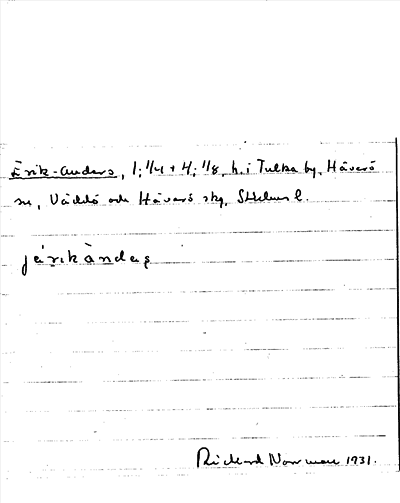 Erik-Anders, 1; 1/4 + 4; 1/8, h. i Tulka by, Häverö
sn, Väddö och Häverö skg, Sthlms l.
jèrikàndeş
Rickard Norrman 1931.